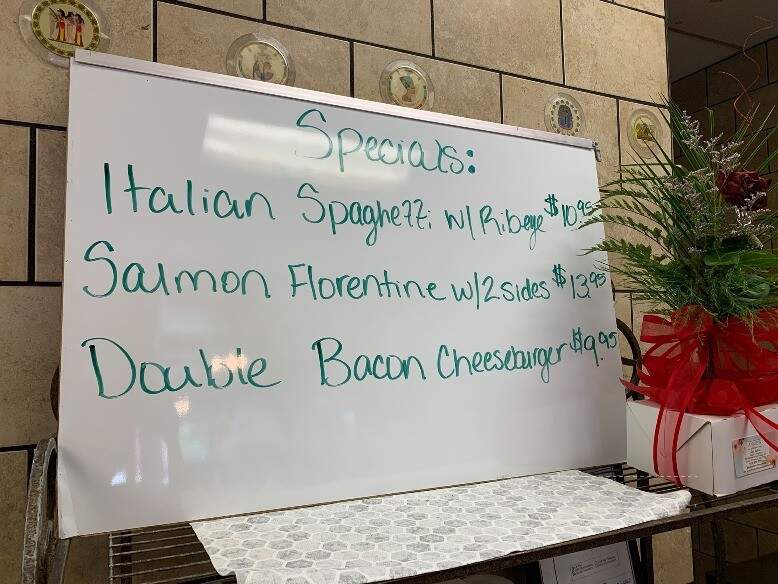 Specials:
Italian Spaghezzi w/ Ribeye $10.95
Salmon Florentine w/2 sides $13.95
Double Bacon Cheeseburger $9.95